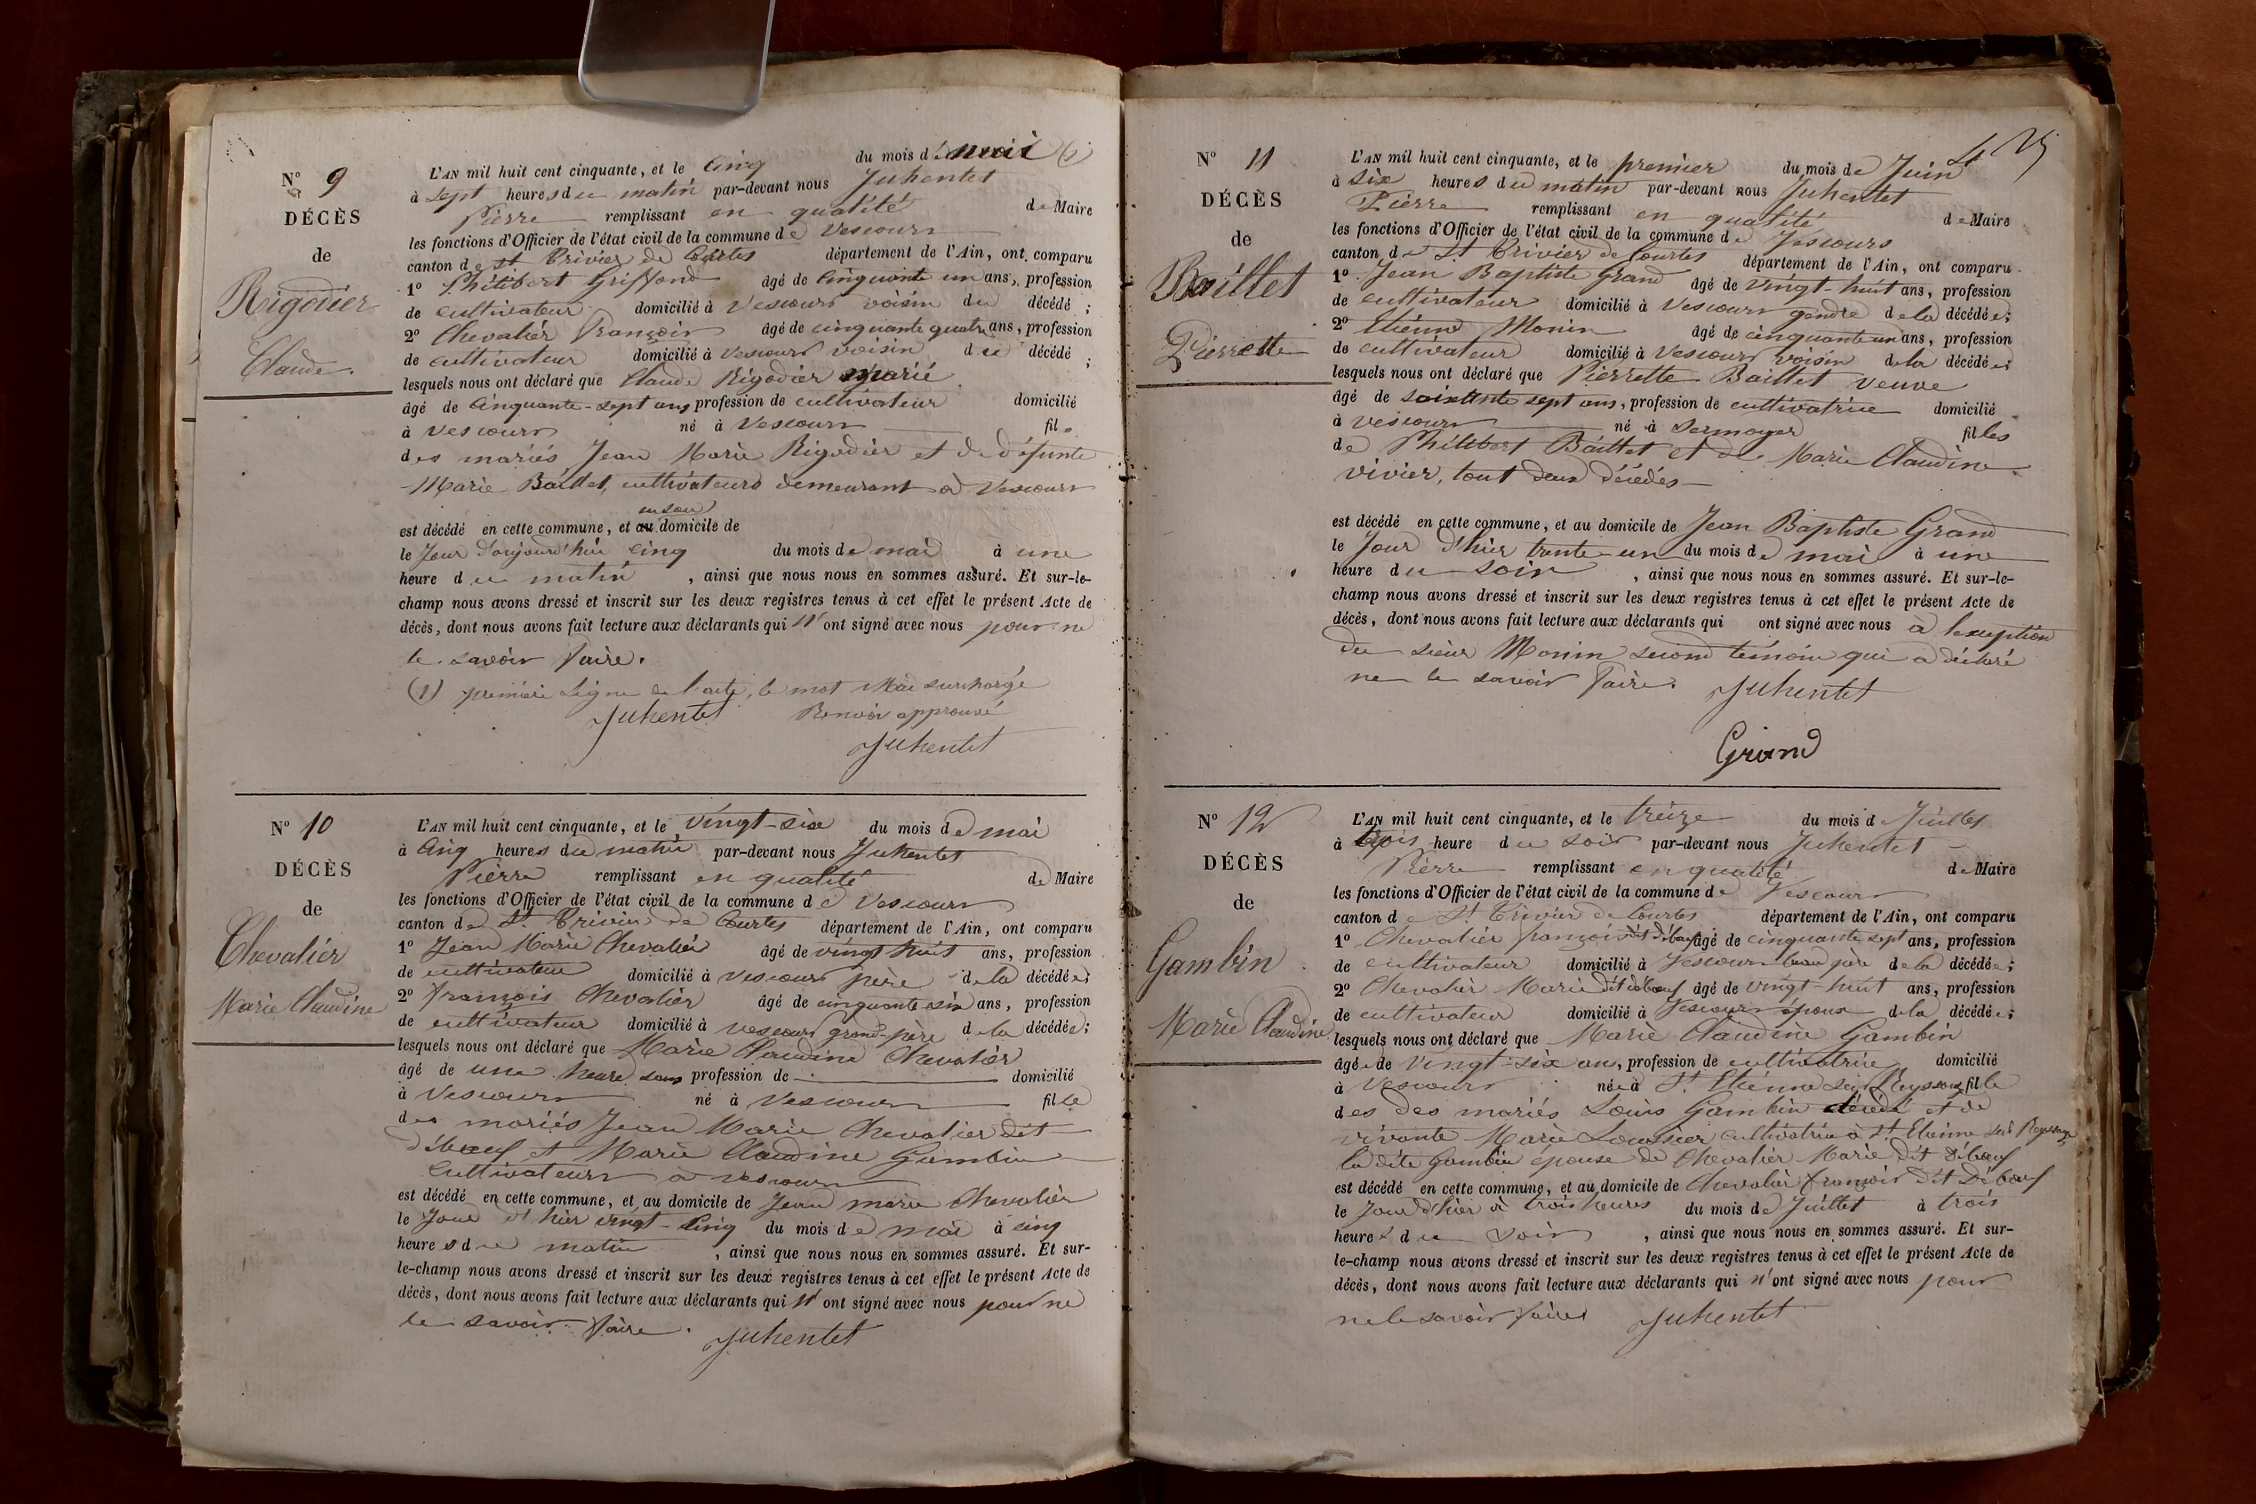 N° 9
DÉCÈS
de
Rigodier
Claude.
L'AN mil huit cent cinquante, et le cinq du mois de mai (1)
à sept heures du matin par-devant nous Juhentet
Pierre remplissant en qualité de Maire
les fonctions d'Officier de l'état civil de la commune de Vescours
canton de St Trivier de Courtes département de l'Ain, ont comparu
1° Philibert Griffond âgé de cinquante un ans, profession
de cultivateur domicilié à Vescours voisin du décédé ;
2° Chevalier François âgé de cinquante quatre ans, profession
de cultivateur domicilié à Vescours voisin du décédé ;
lesquels nous ont déclaré que Claude Rigodier marié
âgé de cinquante-sept ans profession de cultivateur domicilié
à Vescours né à Vescours fils
des mariés Jean Marie Rigodier et de défunte
Marie Baillet, cultivateurs demeurant à Vescours
en son
est décédé en cette commune, et au domicile de
le Jour d'aujourd'hui cinq du mois de mai à une
heure du matin , ainsi que nous nous en sommes assuré. Et sur-le-
champ nous avons dressé et inscrit sur les deux registres tenus à cet effet le présent Acte de
décès, dont nous avons fait lecture aux déclarants qui n'ont signé avec nous pour ne
le savoir faire.
(1) première Ligne de l'acte, le mot Mai surchargé
Juhentet Renvoi approuvé
Juhentet
N° 10
DÉCÈS
de
Chevalier
Marie Claudine
L'AN mil huit cent cinquante, et le vingt-six du mois de mai
à cinq heures du matin par-devant nous Juhentet
Pierre remplissant en qualité de Maire
les fonctions d'Officier de l'état civil de la commune de Vescours
canton de St Trivier de Courtes département de l'Ain, ont comparu
1° Jean Marie Chevalier âgé de vingt huit ans, profession
de cultivateur domicilié à Vescours père de la décédée;
2° François Chevalier âgé de cinquante six ans, profession
de cultivateur domicilié à Vescours grand-père de la décédée;
lesquels nous ont déclaré que Marie Claudine Chevalier
âgé de une heure sans profession de domicilié
à Vescours né à Vescours fille
des mariés Jean Marie Chevalier dit
débœuf et Marie Claudine Gambin
Cultivateurs à Vescours
est décédé en cette commune, et au domicile de Jean marie Chevalier
le Jour d'hier vingt-cinq du mois de mai à cinq
heures du matin , ainsi que nous nous en sommes assuré. Et sur-
le-champ nous avons dressé et inscrit sur les deux registres tenus à cet effet le présent Acte de
décès, dont nous avons fait lecture aux déclarants qui n'ont signé avec nous pour ne
le savoir faire. Juhentet
N° 11
DÉCÈS
de
Baillet
Pierrette
L'AN mil huit cent cinquante, et le premier du mois de Juin
à six heures du matin par-devant nous Juhentet
Pierre remplissant en qualité de Maire
les fonctions d'Officier de l'état civil de la commune de Vescours
canton de St Trivier de Courtes département de l'Ain, ont comparu
1° Jean Baptiste Grand âgé de vingt-huit ans, profession
de cultivateur domicilié à Vescours gendre de la décédée;
2° Etienne Monin âgé de cinquante un ans, profession
de cultivateur domicilié à Vescours voisin de la décédée;
lesquels nous ont déclaré que Pierrette Baillet veuve
âgé de soixante sept ans, profession de cultivatrice domicilié
à Vescours né à Sermoyer filles
de Philibert Baillet et de Marie Claudine
vivier, tout deux décédés
est décédé en cette commune, et au domicile de Jean Baptiste Grand
le Jour d'hier trente-un du mois de mai à une
heure du soir , ainsi que nous nous en sommes assuré. Et sur-le-
champ nous avons dressé et inscrit sur les deux registres tenus à cet effet le présent Acte de
décès, dont nous avons fait lecture aux déclarants qui ont signé avec nous à l'exception
du sieur Monin second témoin qui a déclaré
ne le savoir faire. Juhentet
Grand
N° 12
DÉCÈS
de
Gambin
Marie Claudine
L'AN mil huit cent cinquante, et le treize du mois de Juillet
à trois heure du soir par-devant nous Juhentet
Pierre remplissant en qualité de Maire
les fonctions d'Officier de l'état civil de la commune de Vescours
canton de St Trivier de Courtes département de l'Ain, ont comparu
1° Chevalier françois dit débœuf âgé de cinquante sept ans, profession
de cultivateur domicilié à Vescours beau père de la décédée;
2° Chevalier Marie dit débœuf âgé de vingt-huit ans, profession
de cultivateur domicilié à Vescours époux de la décédée;
lesquels nous ont déclaré que Marie Claudine Gambin
âgée de vingt-six ans, profession de cultivatrice domicilié
à Vescours née à St Etienne sur Reyssouze fille
des des mariés Louis Gambin décédé et de
vivante Marie Loussier cultivatrice à St Etienne sur Reyssouze
la dite Gambin épouse de Chevalier Marie dit débœuf
est décédé en cette commune, et au domicile de Chevalier françois dit Débœuf
le Jour d'hier à trois heures du mois de Juillet à trois
heures du soir , ainsi que nous nous en sommes assuré. Et sur-
le-champ nous avons dressé et inscrit sur les deux registres tenus à cet effet le présent Acte de
décès, dont nous avons fait lecture aux déclarants qui n'ont signé avec nous pour
ne le savoir faire Juhentet